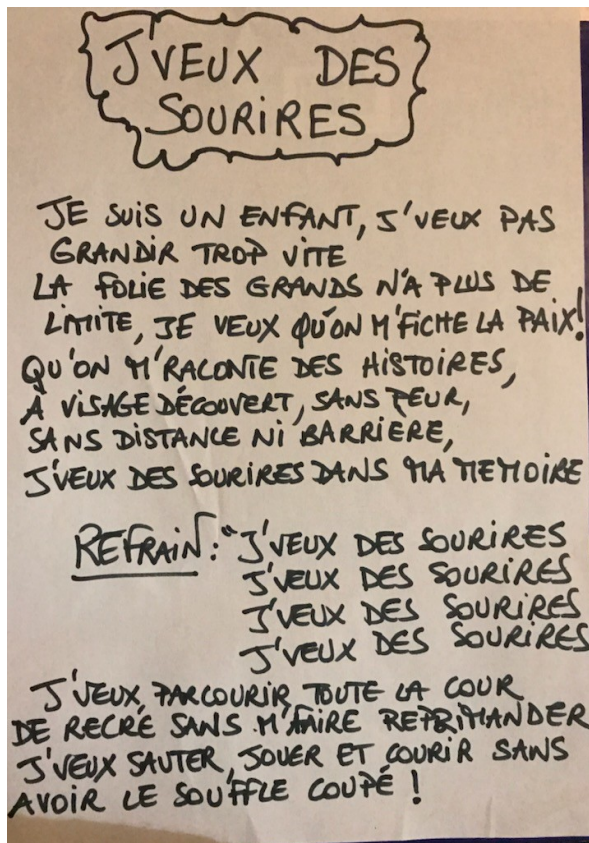 J'VEUX DES
SOURIRES
JE SUIS UN ENFANT, J'VEUX PAS
GRANDIR TROP VITE
LA FOLIE DES GRANDS N'A PLUS DE
LIMITE, JE VEUX QU'ON M'FICHE LA PAIX!
QU'ON M'RACONTE DES HISTOIRES,
À VISAGE DÉCOUVERT, SANS PEUR,
SANS DISTANCE NI BARRIERE,
J'VEUX DES SOURIRES DANS MA MEMOIRE
REFRAIN: "J'VEUX DES SOURIRES
J'VEUX DES SOURIRES
J'VEUX DES SOURIRES
J'VEUX DES SOURIRES
J'VEUX PARCOURIR TOUTE LA COUR
DE RECRÉ SANS M'FAIRE REPRIMANDER
J'VEUX SAUTER, JOUER ET COURIR SANS
AVOIR LE SOUFFLE COUPÉ !